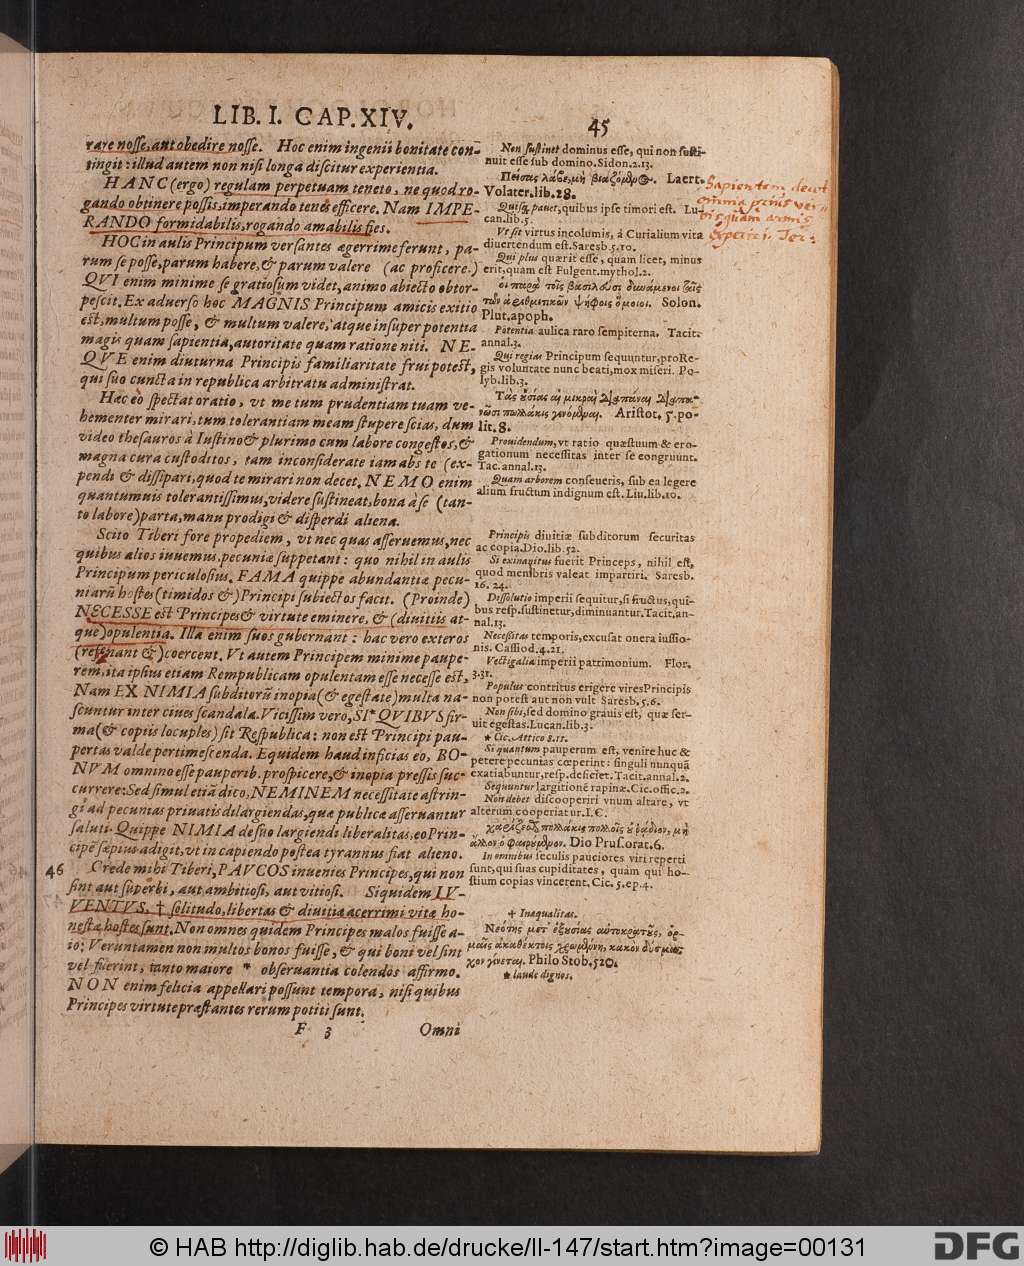 LIB. I. CAP. XIV.
45
rare nosse, aut obedire nosse. Hoc enim ingenii bonitate con-
tingit: illud autem non nisi longa discitur experientia.
HANC (ergo) regulam perpetuam teneto, ne quod ro-
gando obtinere possis, imperando tentes efficere. Nam IMPE-
RANDO formidabilis, rogando amabilis fies.
HOC in aulis Principum versantes ægerrime ferunt, pa-
rum se posse, parum habere, & parum valere (ac proficere.)
QVI enim minime se gratiosum videt, animo abiecto obtor-
pescit. Ex aduerso hoc MAGNIS Principum amicis exitio
est, multum posse, & multum valere, atque insuper potentia
magis quam sapientia, autoritate quam ratione niti. NE-
QVE enim diuturna Principis familiaritate frui potest,
qui suo cuncta in republica arbitratu administrat.
Hac eo spectat oratio, vt me tum prudentiam tuam ve-
hementer mirari, tum tolerantiam meam stupere scias, dum
video thesauros à Iustino & plurimo cum labore congestos, &
magna cura custoditos, tam inconsiderate iam abs te (ex-
pendi & dissipari, quod te mirari non decet. NEMO enim
quantumuis tolerantissimus, videre sustineat, bona à se (tan-
to labore) parta, manu prodigi & disperdi aliena.
Scito Tiberi fore propediem, vt nec quas asseruemus, nec
quibus alios iuuemus, pecuniæ suppetant: quo nihil in aulis
Principum periculosius. FAMA quippe abundantiæ pecu-
niarũ hostes (timidos &) Principi subiectos facit. (Proinde)
NECESSE est Principes & virtute eminere, & (diuitiis at-
que) opulentia. Illa enim suos gubernant: hac vero exteros
(refrænant &) coercent. Vt autem Principem minime paupe-
rem, ita ipsius etiam Rempublicam opulentam esse necesse est,
Nam EX NIMIA subditorũ inopia (& egestate) multa na-
scuntur inter ciues scandala. Vicissim vero, SI * QVIBVS fir-
ma (& copiis locuples) sit Respublica: non est Principi pau-
pertas valde pertimescenda. Equidem haud inficias eo, BO-
NVM omnino esse pauperib. prospicere, & inopia pressis suc-
currere: Sed simul etiã dico, NEMINEM necessitate astrin-
gi ad pecunias priuatis dilargiendas, quæ publicæ asseruantur
saluti. Quippe NIMIA de suo largiendi liberalitas, eo Prin-
cipẽ sæpius adigit, vt in capiendo postea tyrannus fiat alieno.
46
Crede mihi Tiberi, PAVCOS inuenies Principes, qui non
sint aut superbi, aut ambitiosi, aut vitiosi. Siquidem IV-
VENTVS, † solitudo, libertas & diuitiæ acerrimi vitæ ho-
nestæ hostes sunt. Non omnes quidem Principes malos fuisse a-
io: Veruntamen non multos bonos fuisse, & qui boni vel sint
vel fuerint, tanto maiore * obseruantia colendos affirmo.
NON enim felicia appellari possunt tempora, nisi quibus
Principes virtute præstantes rerum potiti sunt.
F 3
Omni
Non sustinet dominus esse, qui non susti-
nuit esse sub domino. Sidon. 2. 13.
Πείσας λάβε, μὴ βιαζόμενος. Laert.
Volater. lib. 28.
Quisq; pauet, quibus ipse timori est. Lu-
can. lib. 5.
Vt sit virtus incolumis, á Curialium vita
diuertendum est. Saresb. 5. 10.
Qui plus quærit esse, quam licet, minus
erit, quam est Fulgent. mythol. 2.
οἱ παρὰ τοῖς βασιλεῦσι δυνάμενοι ταῖς
τῶν ἀριθμητικῶν ψήφοις ὅμοιοι. Solon.
Plut. apoph.
Potentia aulica raro sempiterna. Tacit.
annal. 3.
Qui regias Principum sequuntur, pro Re-
gis voluntate nunc beati, mox miseri. Po-
lyb. lib. 3.
Τὰς οὐσίας αἱ μικραὶ δαπάναι δαπα-
νῶσι πολλάκις γινόμεναι. Aristot. 5. po-
lit. 8.
Prouidendum, vt ratio quæstuum & ero-
gationum necessitas inter se congruunt.
Tac. annal. 13.
Quam arborem conseueris, sub ea legere
alium fructum indignum est. Liu. lib. 10.
Principis diuitiæ subditorum securitas
ac copia. Dio. lib. 52.
Si exinanitus fuerit Princeps, nihil est,
quod membris valeat impartiri. Saresb.
16. 24.
Dissolutio imperii sequitur, si fructus, qui-
bus resp. sustinetur, diminuantur. Tacit. an-
nal. 13.
Necessitas temporis, excusat onera iussio-
nis. Cassiod. 4. 21.
Vectigalia imperii patrimonium. Flor.
3. 31.
Populus contritus erigere vires Principis
non potest aut non vult Saresb. 5. 6.
Non sibi, sed domino grauis est, quæ ser-
uit egestas. Lucan. lib. 3.
* Cic. Attico 8. 11.
Si quantum pauperum est, venire huc &
petere pecunias cœperint: singuli nunquã
exatiabuntur, resp. deficiet. Tacit. annal. 2.
Sequuntur largitionẽ rapinæ. Cic. offic. 2.
Non debet discooperiri vnum altare, vt
alterum cooperiatur. I. C.
Dio Prus. orat. 6.
In omnibus seculis pauciores viri reperti
sunt, qui suas cupiditates, quam qui ho-
stium copias vincerent, Cic. 5. ep. 4.
† Inæqualitas.
Philo Stob. 520.
* laude dignos.
Sapientem decet
omnia prius ver-
bis quàm armis
experiri. Ter:
© HAB http://diglib.hab.de/drucke/ll-147/start.htm?image=00131
DFG